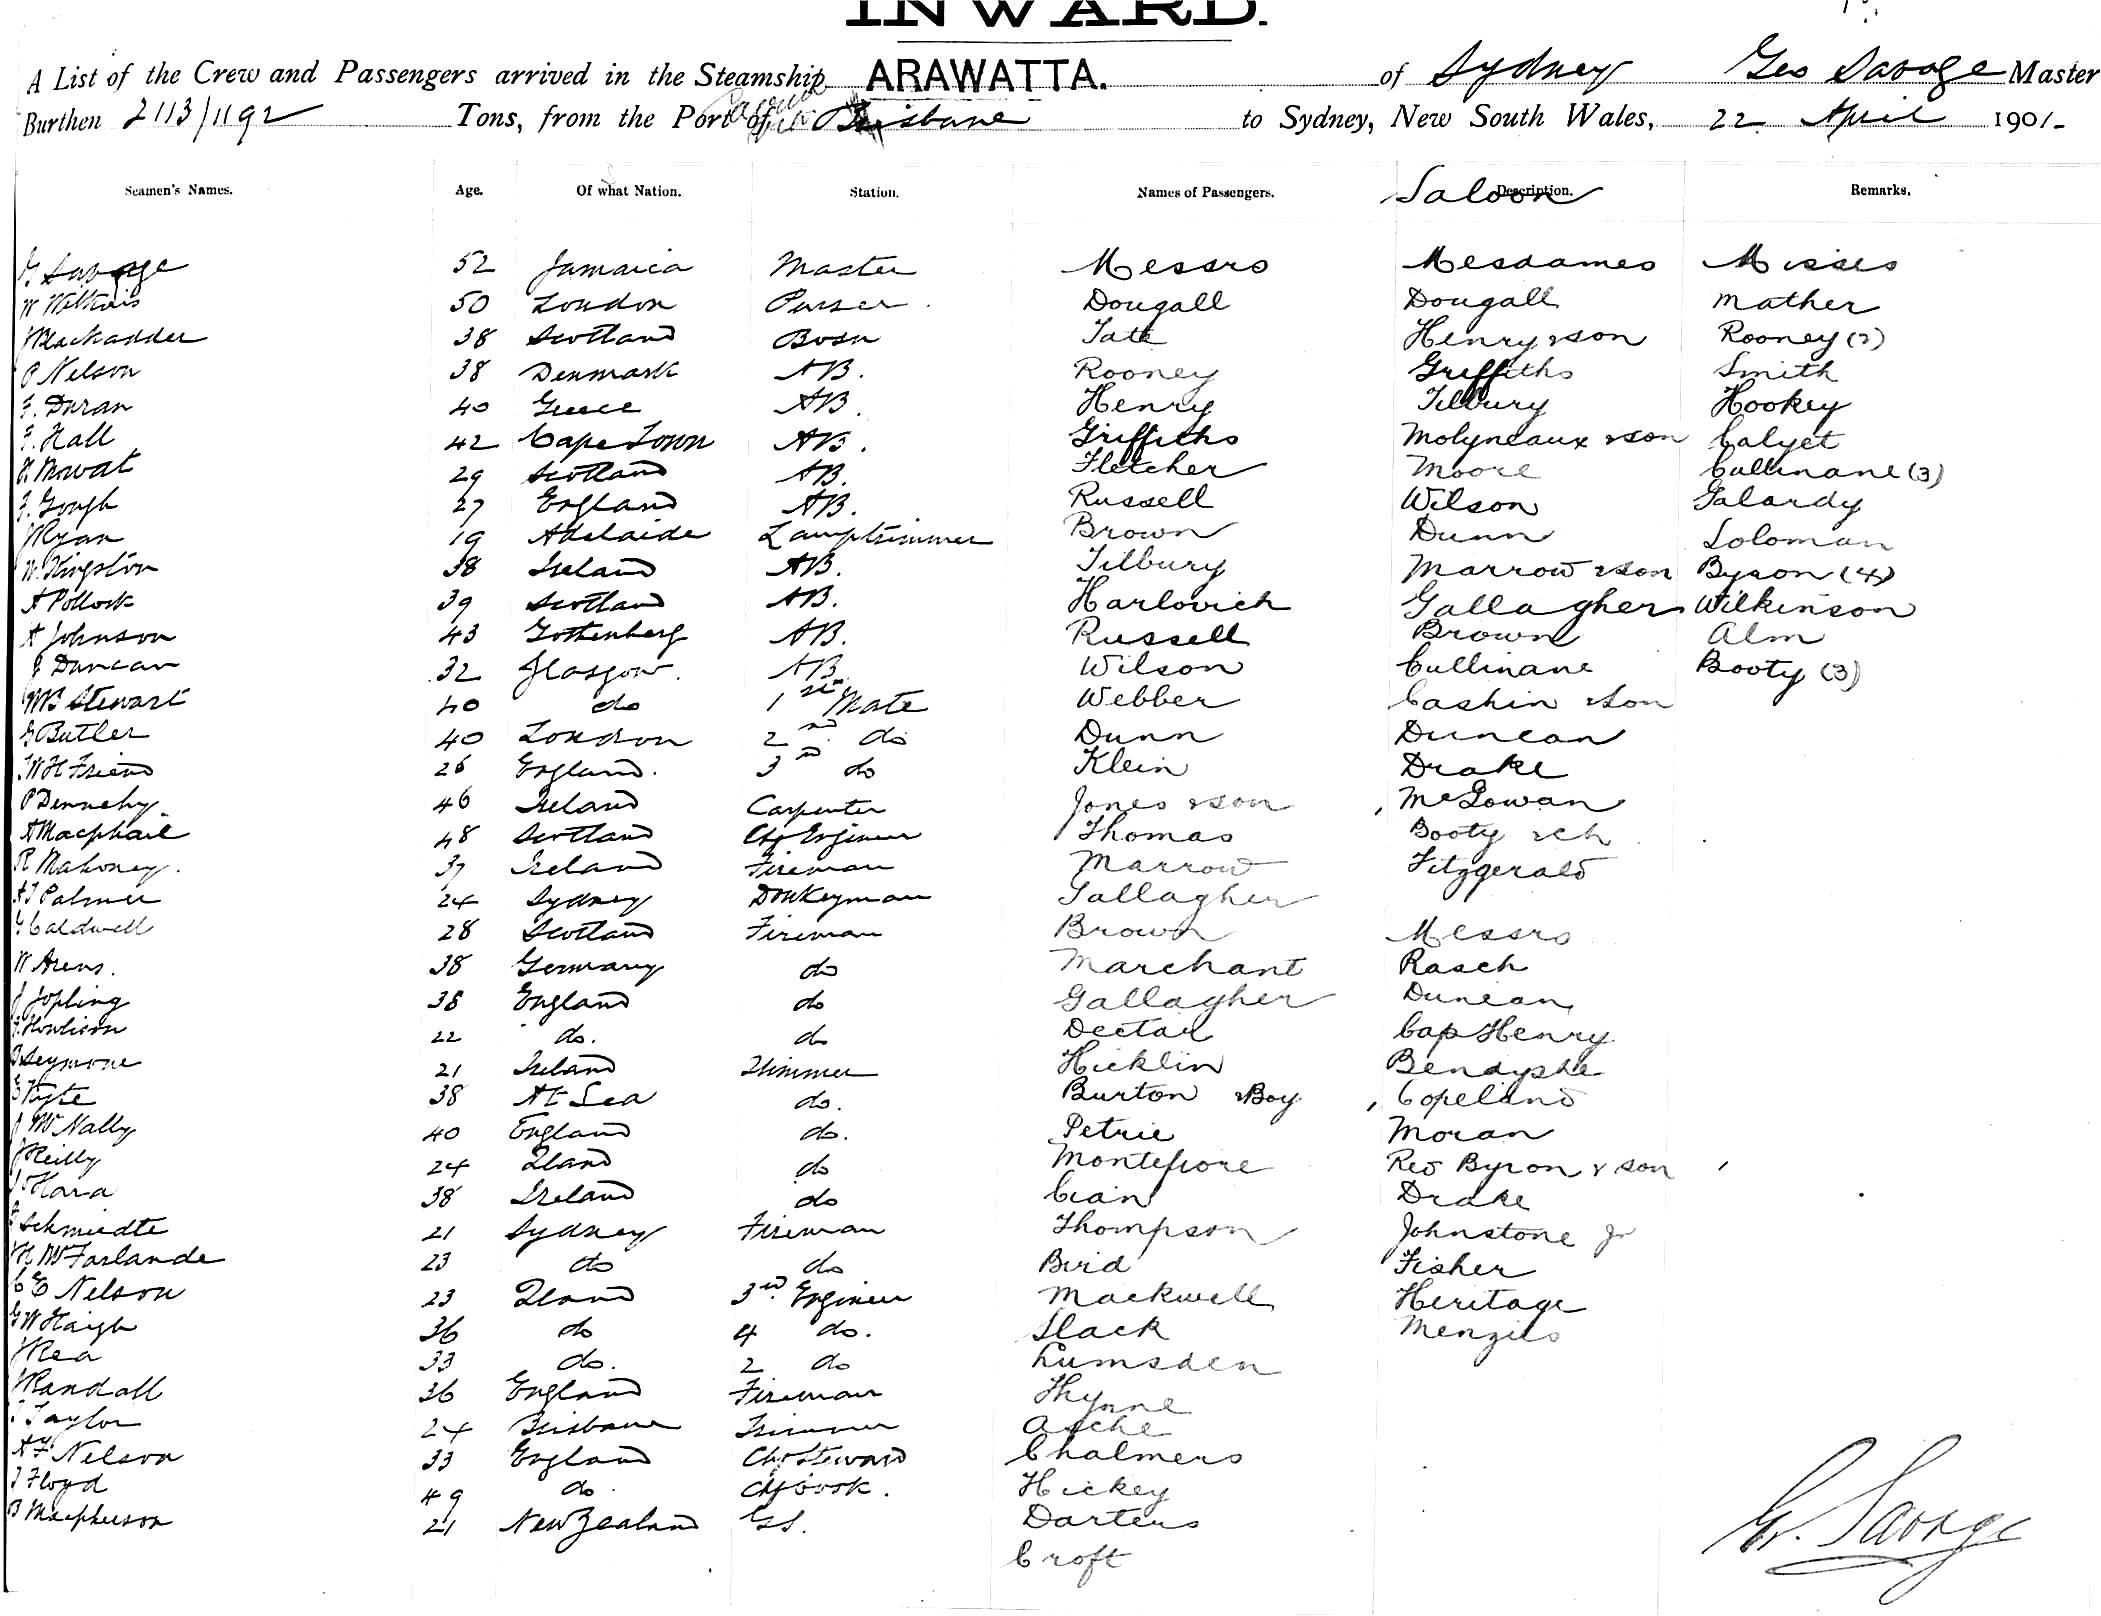 INWARD.
A List of the Crew and Passengers arrived in the Steamship ARAWATTA. of Sydney Geo Savage Master
Burthen 2113/1192 Tons, from the Port of Brisbane to Sydney, New South Wales, 22 April 1901-
Seamen's Names. Age. Of what Nation. Station. Names of Passengers. Description. Saloon Remarks.
G Savage 52 Jamaica Master Messrs Mesdames Misses
W Wilkins 50 London Purser Dougall Dougall Mather
J Blackadder 38 Scotland Bosn Tate Henry & son Rooney (2)
P Nelson 38 Denmark AB. Rooney Griffiths Smith
F. Duran 40 Greece AB. Henry Tilbury Hookey
F. Hall 42 Cape Town AB. Griffiths Molyneaux & son Calyet
Mowat 29 Scotland AB. Fletcher Moore Cullinane (3)
F. Gough 27 England AB. Russell Wilson Galardy
J Ryan 19 Adelaide Lamptrimmer Brown Dunn Soloman
W. Kingston 38 Ireland AB. Tilbury Marrow & son Byron (4)
A Pollock 39 Scotland AB. Harlovich Gallagher Wilkinson
A Johnson 43 Gothenberg AB. Russell Brown Alm
J Duncan 32 Glasgow. AB Wilson Cullinane Booty (3)
WB Stewart 40 do 1st Mate Webber Cashin & son
G Butler 40 London 2nd do Dunn Duncan
W H Friend 26 England. 3rd do Klein Drake
P Dennehy 46 Ireland Carpenter Jones & son McGowan
A Macphail 48 Scotland Chf Engineer Thomas Booty & ch
R Mahoney. 37 Ireland Fireman Marrow Fitzgerald
A J Palmer 24 Sydney Donkeyman Gallagher
G Caldwell 28 Scotland Fireman Brown Messrs
W Arens. 38 Germany do Marchant Rasch
J Jopling 38 England do Gallagher Duncan
Howlison 22 do. do Dectar Cap Henry
Seymore 21 Ireland Trimmer Hicklin Bendyshe
Kyte 38 At Sea do. Burton & Boy Copeland
J McNally 40 England do. Petrie Moran
J Reilly 24 Qland do Montefiore Rev Byron & son
J O'Hara 38 Ireland do Cian Drake
Schmiedte 21 Sydney Fireman Thompson Johnstone Jr
H McFarlande 23 do do Bird Fisher
C E Nelson 23 Qland 3rd Engineer Mackwell Heritage
G W Haigh 36 do 4 do. Slack Menzies
J Rea 33 do. 2 do Lumsden
J Randall 36 England Fireman Thynne
Taylor 24 Brisbane Trimmer Asche
A F Nelson 33 England Chf Steward Chalmers
J Floyd 49 do. Chf Cook. Hickey
B Macpherson 21 New Zealand GS. Darteus
Croft
G. Savage